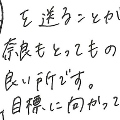 を送ることが
奈良もとってもの
良い所です。
目標に向かって